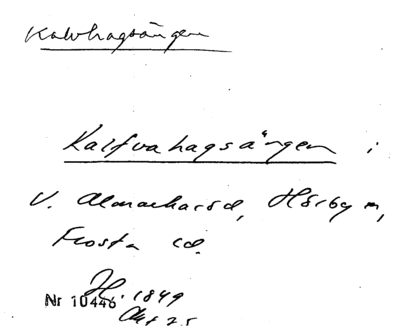 Kalvhagsängen
Kalfvahagsängen i
V. Almarhared, Hörby sn,
Frosta hd.
H. 1849
Nr 10446
Akt 25